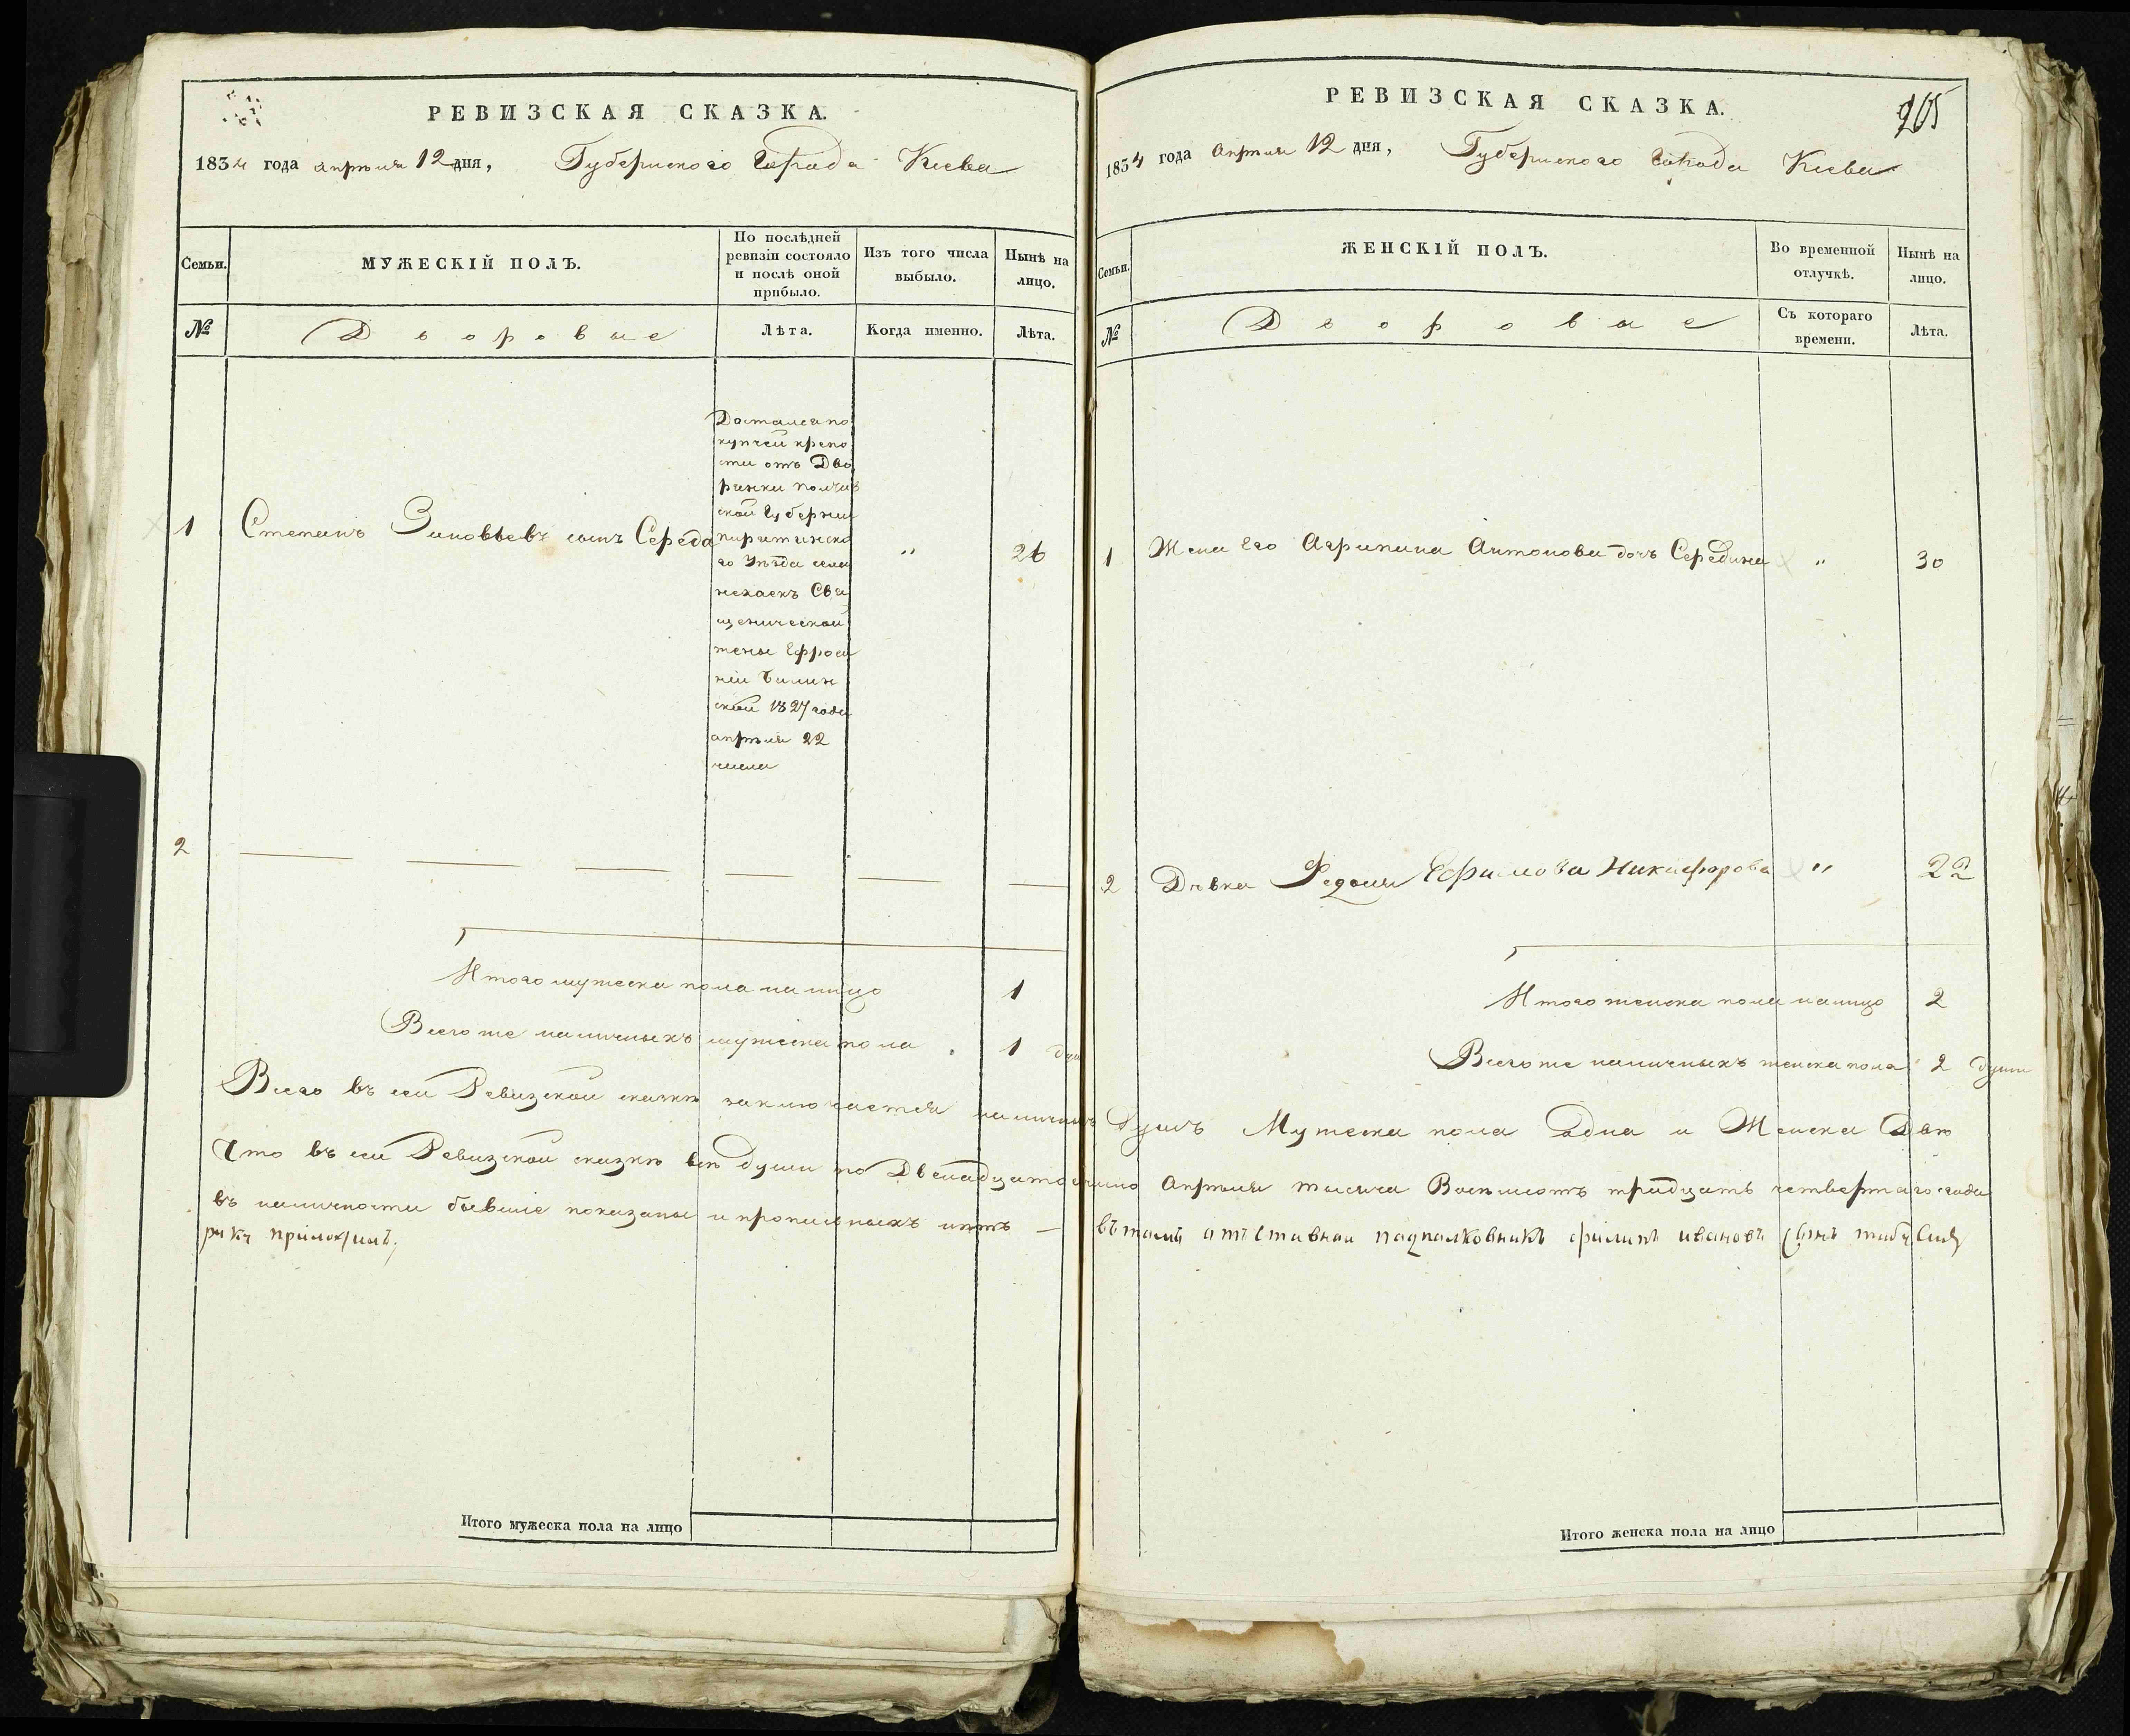 РЕВИЗСКАЯ СКАЗКА.
1834 года апреля 12 дня, Губернского Города Киева
Семьи. МУЖЕСКІЙ ПОЛЪ. По послѣдней ревизіи состояло и послѣ оной прибыло. Изъ того числа выбыло. Нынѣ на лицо.
№ Дворовые Лѣта. Когда именно. Лѣта.
Досталсяпо
купчей крепо
сти отъ Дво
рянки
ской Губерніи
пирятинска
го Уѣзда села
Свя
щенической
жены Ефроси
ніи Билин
ской 1827 года
апреля 22
числа
1 Степанъ Зиновьевъ сынъ Середа " 26
2
Итого мужеска пола налицо 1
Всегоже наличныхъ мужеска пола 1 душ
Всего въ сей Ревизской сказкѣ заключается наличныхъ
Что въ сей Ревизской сказкѣ всѣ души по Двенадцатое число
въ наличности бывшіе показаны и прописныхъ нѣтъ —
Итого мужеска пола на лицо
РЕВИЗСКАЯ СКАЗКА.
905
1834 года Апреля 12 дня, Губернского Города Киева
Семьи. ЖЕНСКІЙ ПОЛЪ. Во временной отлучкѣ. Нынѣ на лицо.
№ Дворовые Съ котораго времени. Лѣта.
1 Жена Его Агрипина Антонова дочь Середина " 30
2 Дѣвка Федоси Ефимова Никифорова " 22
Итого женска пола налицо 2
Всегоже наличныхъ женска пола 2 души
Душъ Мужеска пола Одна и Женска Двѣ
Апреля тысяча Восемсотъ тридцать четвертаго года
въ томъ отъставной падпалковникъ филипъ ивановъ сынъ
Итого женска пола на лицо